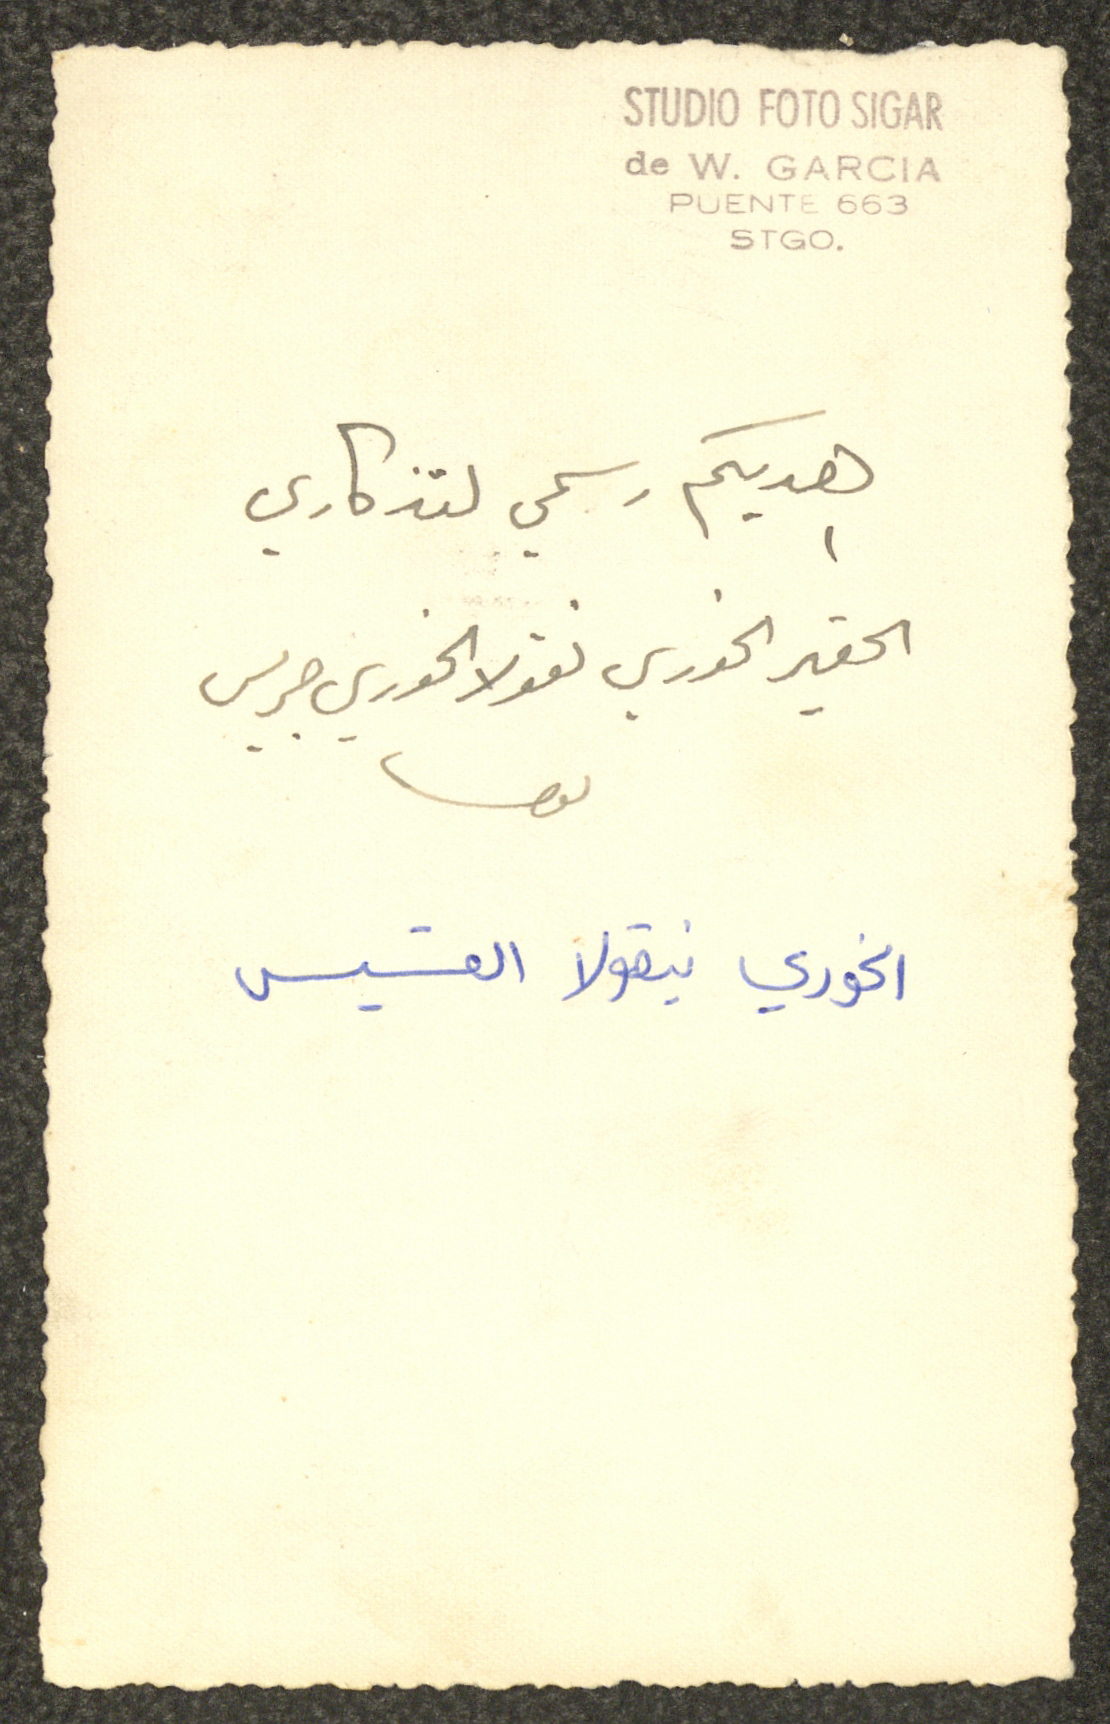 STUDIO FOTO SIGAR
de W. GARCIA
PUENTE 663
STGO.
اهديكم رسمي لتذكاري
الحقير الخوري نقولا الخوري جريس
الخوري نيقولا القسيس